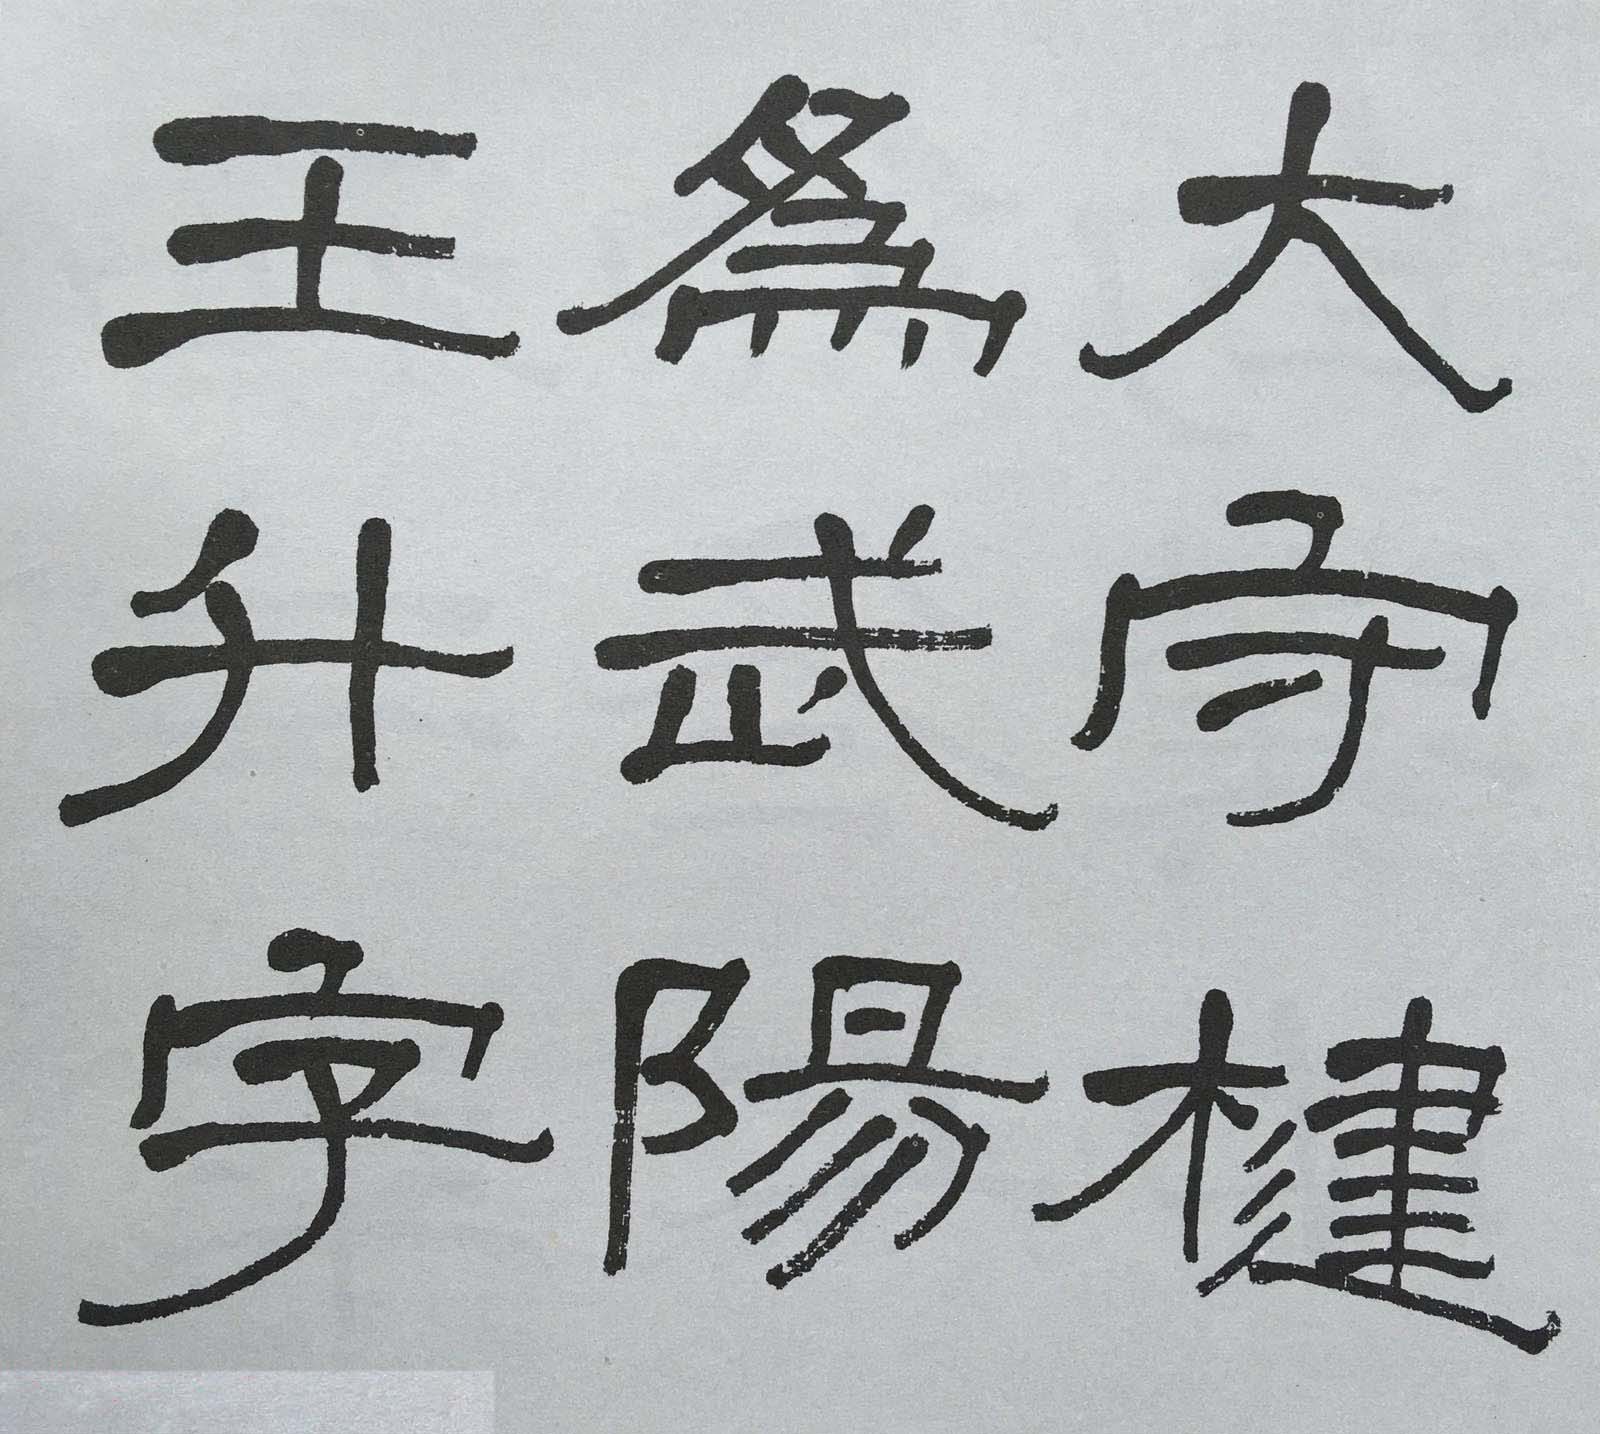 大守楗
為武陽
王升字